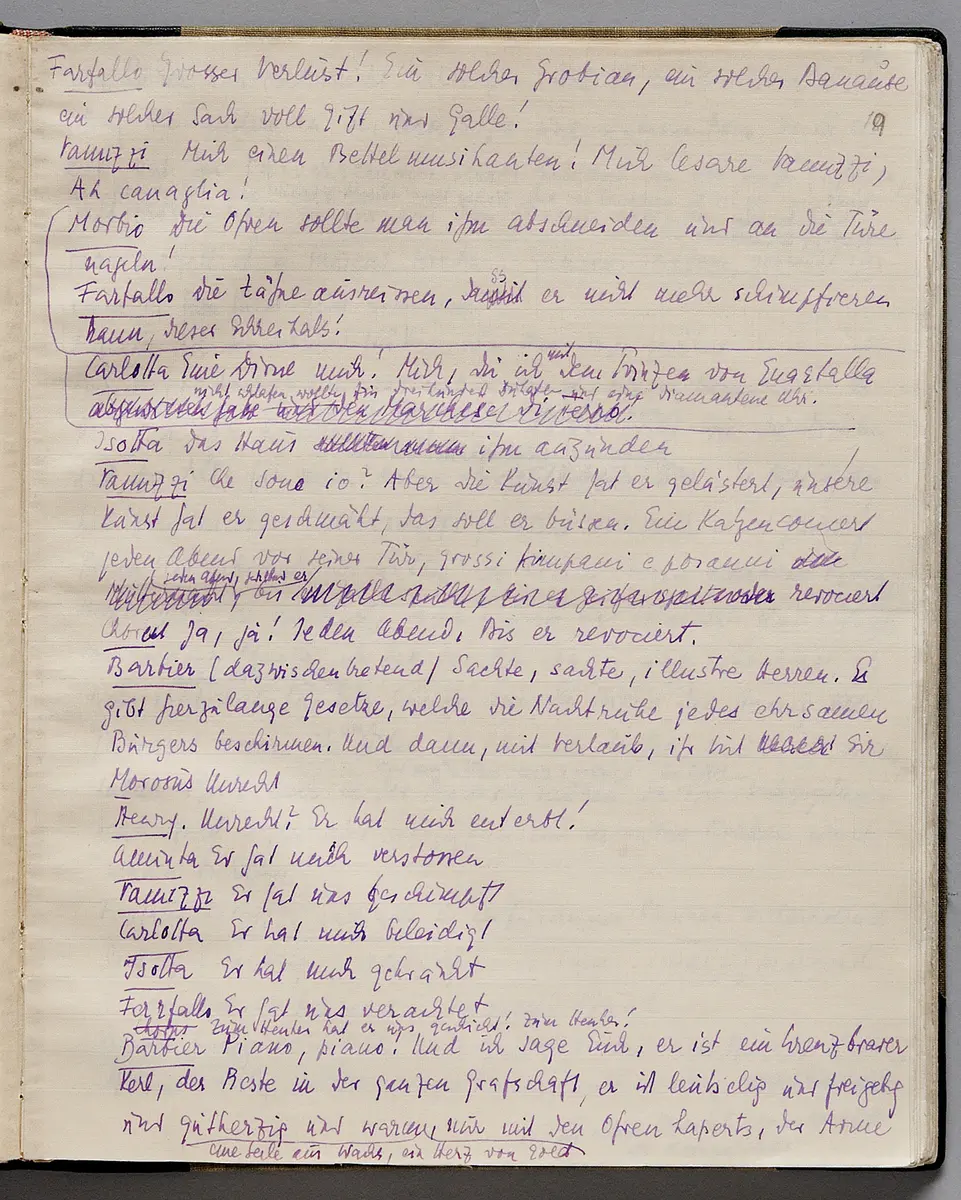 Farfallo Grosser Verlust! Ein solcher Grobian, ein solcher Banause
ein solcher Sack voll Gift und Galle!
9
Vanuzzi Mich einen Bettelmusikanten! Mich Cesare Vanuzzi,
Ah canaglia!
Morbio Die Ohren sollte man ihm abschneiden und an die Türe
nageln!
Farfallo die Zähne ausreissen, dass er nicht mehr schimpfieren
kann, dieser Schreihals!
Carlotta Eine Dirne mich! Mich, die ich mit dem Prinzen von Guastalla
nicht schlafen wollte, für dreihundert Dukaten und eine diamantene Uhr.
Isotta das Haus ihm anzünden
Vanuzzi Che sono io? Aber die Kunst hat er gelästert, unsere
Kunst hat er geschmäht, das soll er büssen. Ein Katzenconcert
jeden Abend vor seiner Tür, grossi timpani e posauni
jeden Abend, bis er revociert
Chor Ja, ja! Jeden Abend. Bis er revociert.
Barbier (dazwischentretend) Sachte, sachte, illustre Herren. Es
gibt hierzulange Gesetze, welche die Nachtruhe jedes ehrsamen
Bürgers beschirmen. Und dann, mit Verlaub, ihr tut Sir
Morosus Unrecht
Henry. Unrecht? Er hat mich enterbt!
Aminta Er hat mich verstossen
Vanuzzi Er hat uns geschimpft
Carlotta Er hat mich beleidigt
Isotta Er hat mich gekränkt
Farfallo Er hat uns verachtet
Chorus Zum Henker hat er uns geschickt! Zum Henker!
Barbier Piano, piano! Und ich sage Euch, er ist ein kreuzbraver
Kerl, der Beste in der ganzen Grafschaft, er ist leutselig und freigebig
und gutherzig und warm, nur mit den Ohren haperts, der Arme
eine Seele aus Wachs, ein Herz von Gold